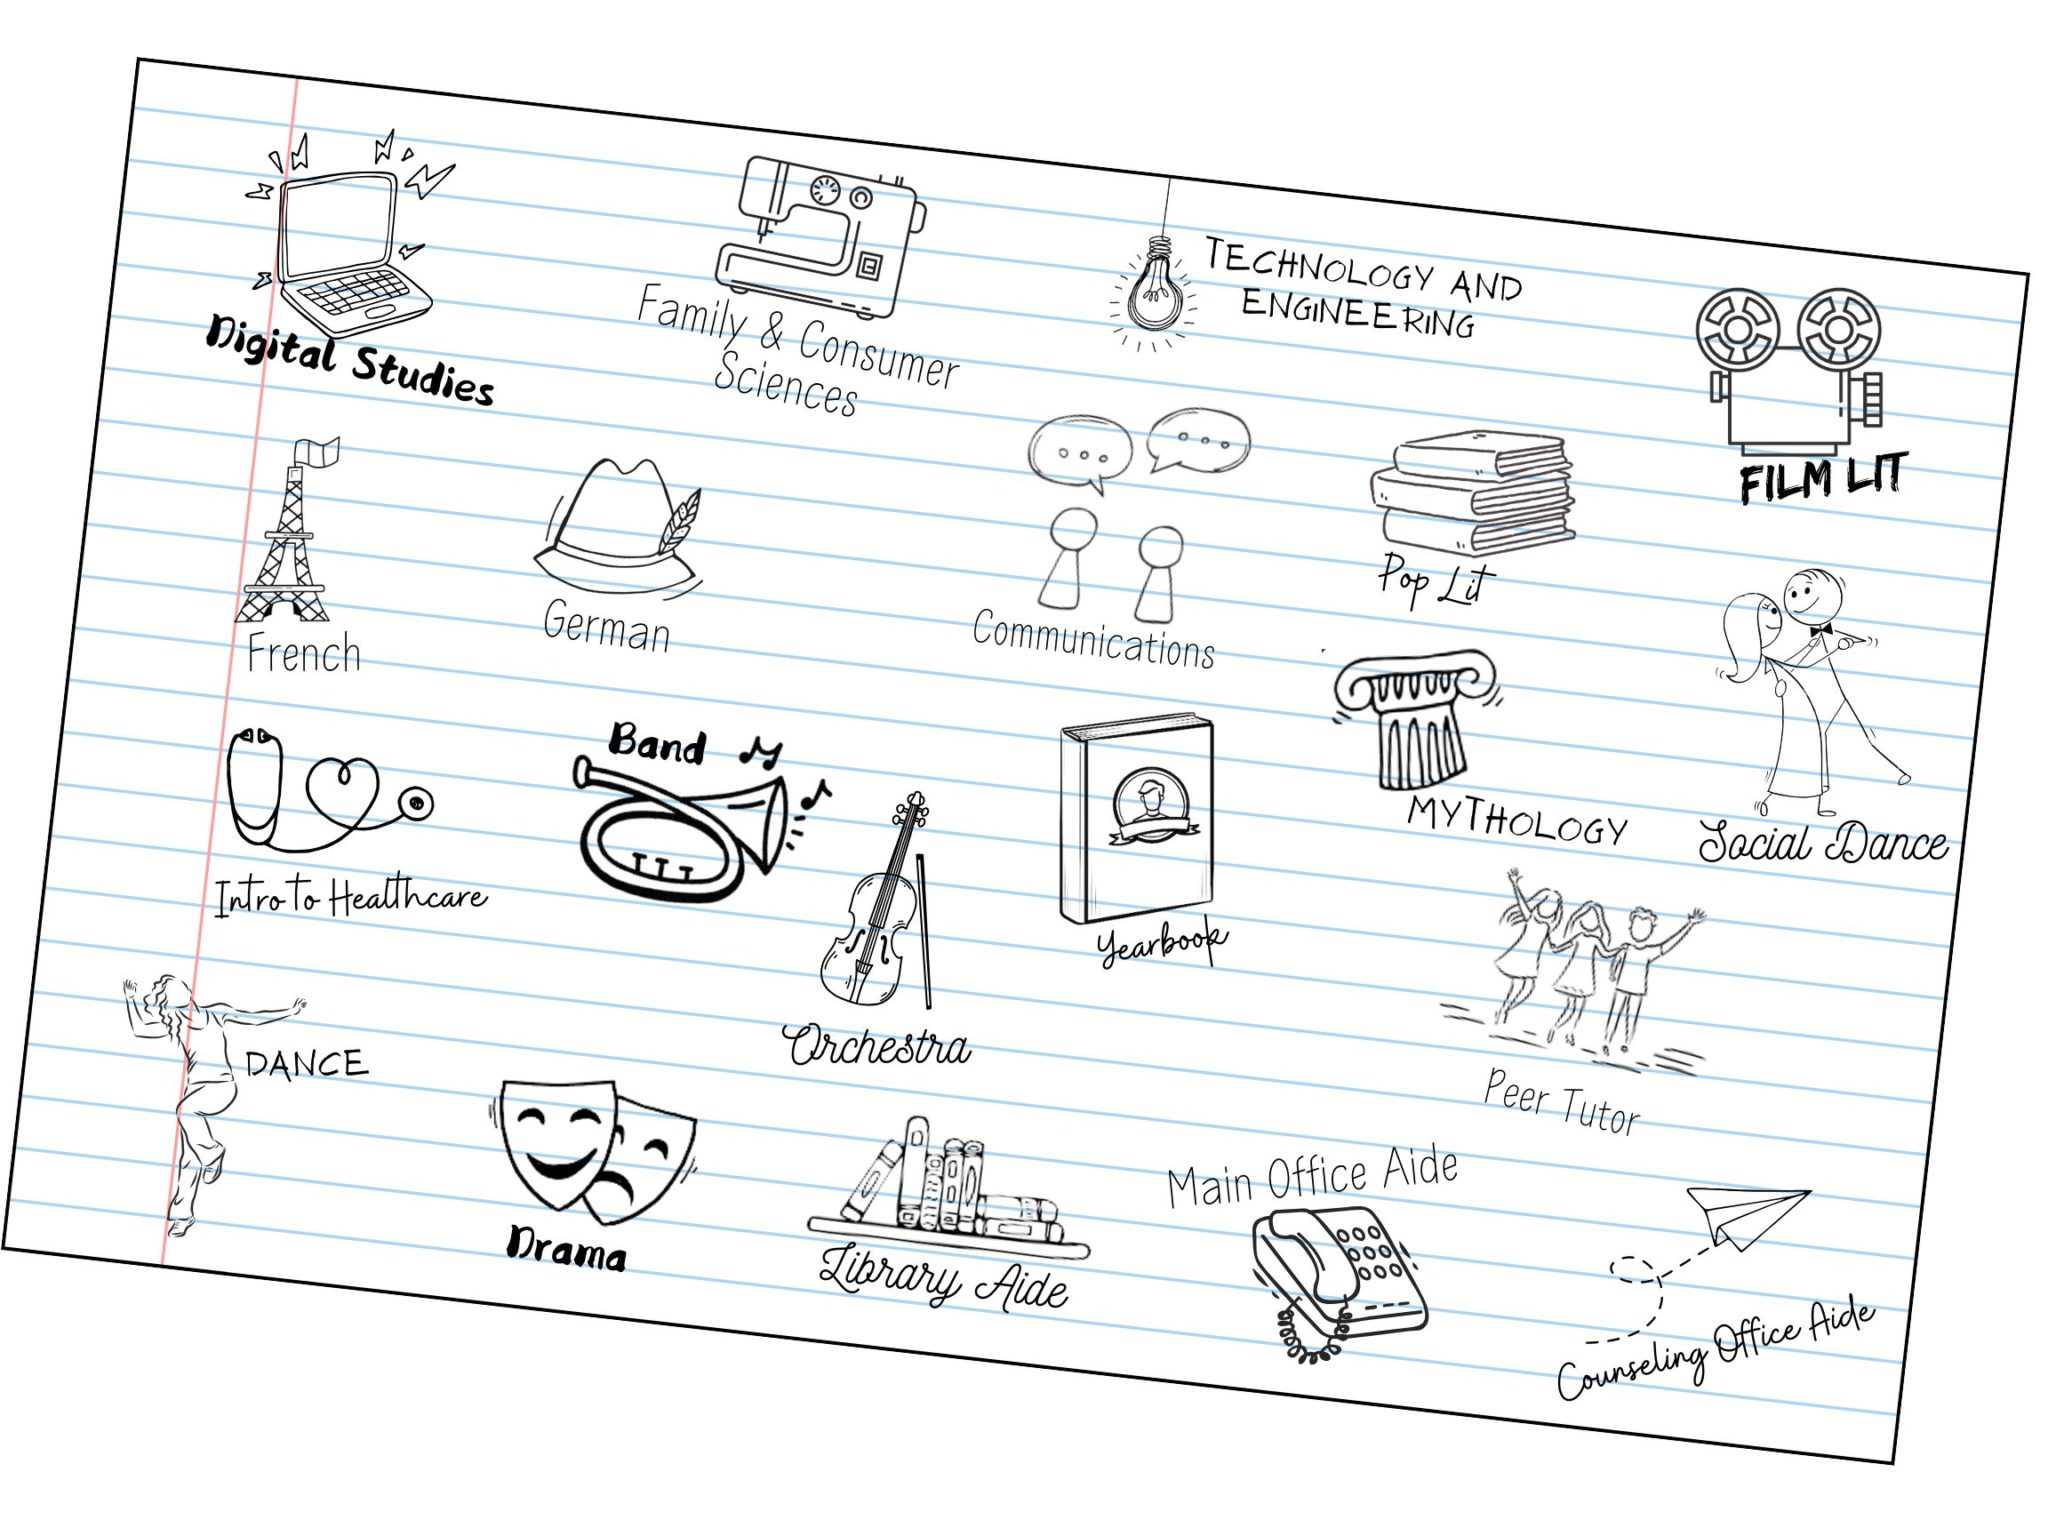 Digital Studies
Family & Consumer
Sciences
TECHNOLOGY AND
ENGINEERING
FILM LIT
French
German
Communications
Pop Lit
Social Dance
Intro to Healthcare
Band
Orchestra
Yearbook
MYTHOLOGY
DANCE
Drama
Library Aide
Main Office Aide
Peer Tutor
Counseling Office Aide